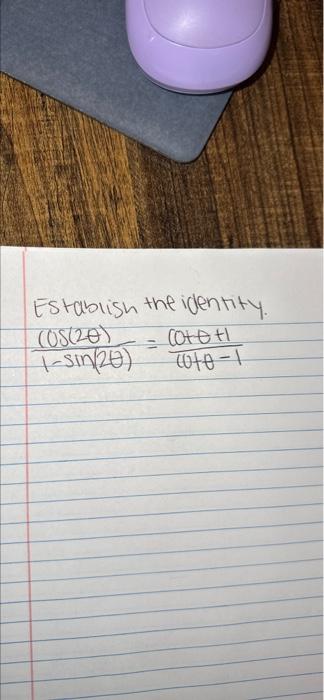 Establish the identity.
cos(2θ)/1-sin(2θ) = cotθ+1/cotθ-1